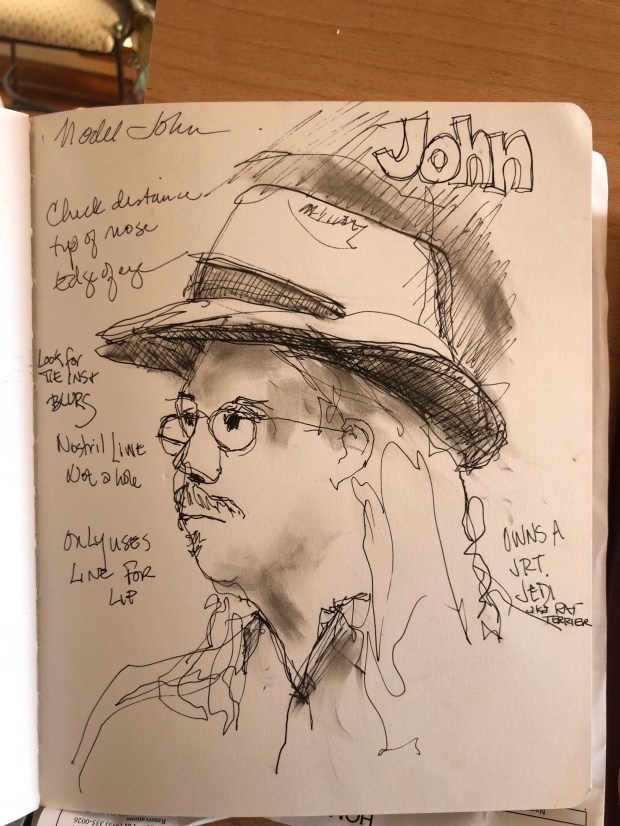 Model John
John
Check distance
tip of nose
Edge of eye
Look for
THE INST
BLURS
Nostril Line
Not a hole
ONLY USES
LINE FOR
LIP
OWNS A
JRT.
JEDI
AKA RAT
TERRIER
Reservations
335-0026
HOM